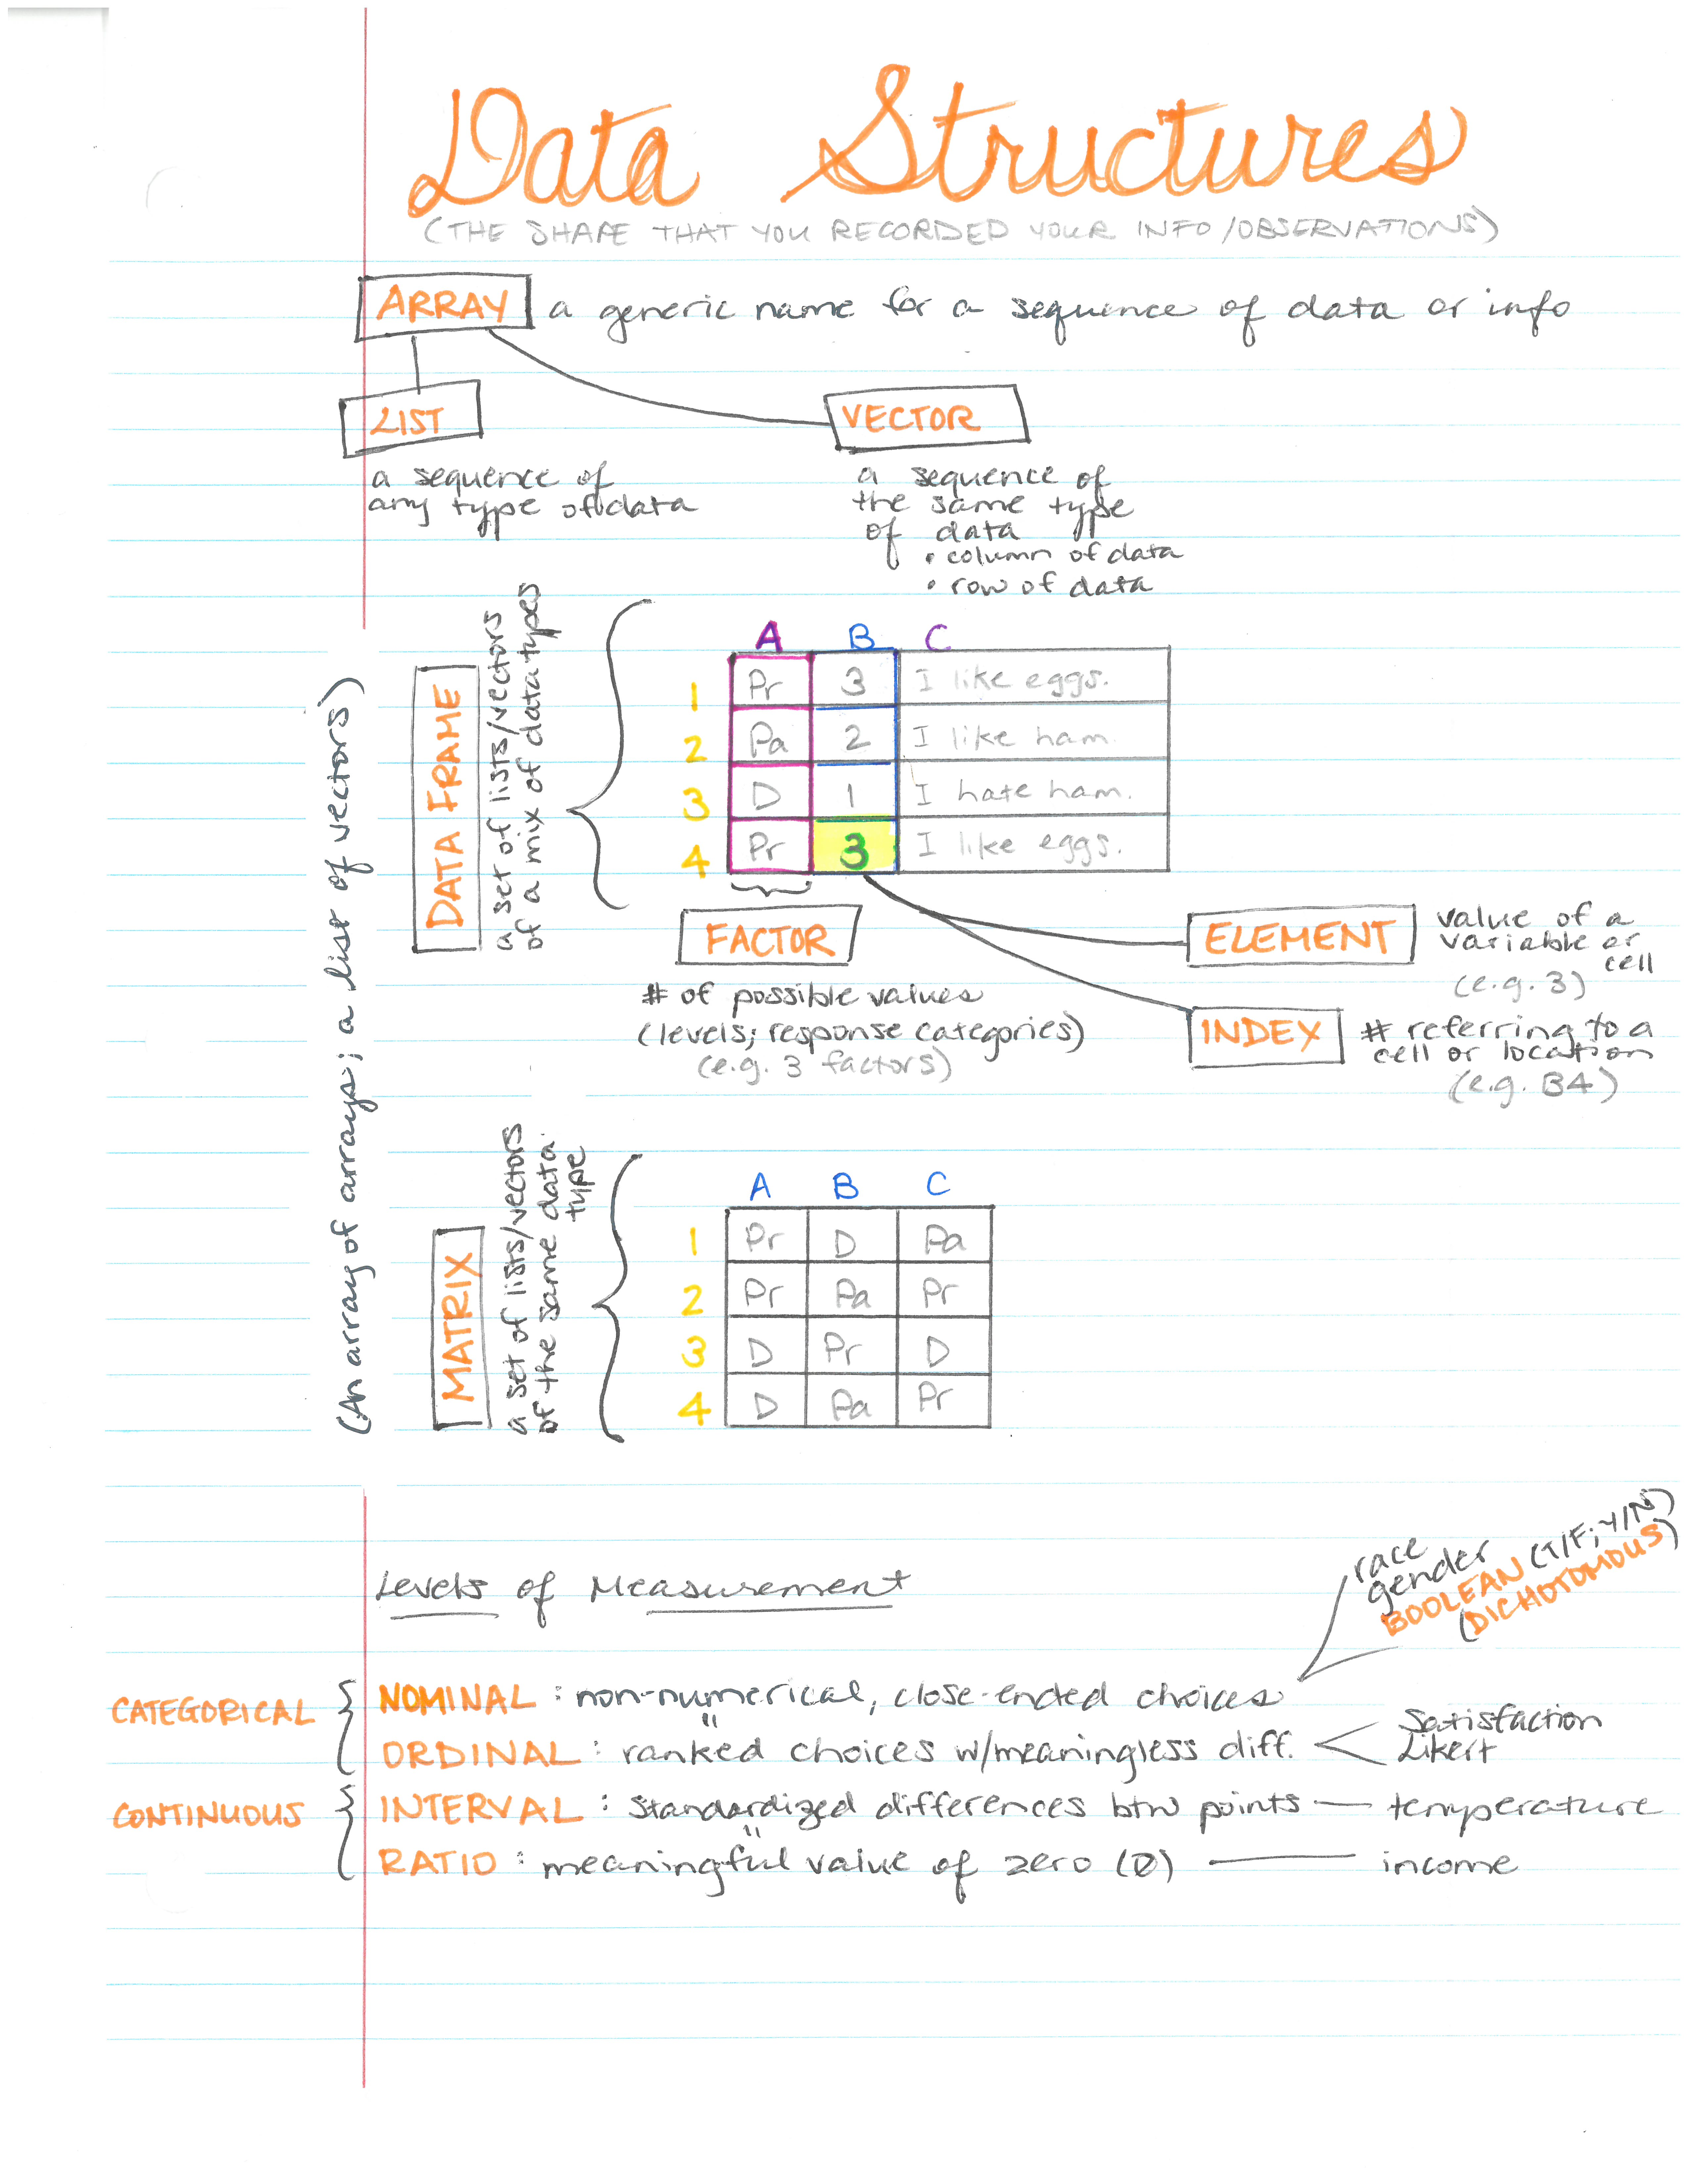 Data Structures
(THE SHAPE THAT YOU RECORDED YOUR INFO/OBSERVATIONS)
ARRAY a generic name for a sequence of data or info
LIST
a sequence of
any type of data
VECTOR
a sequence of
the same type
of data
• column of data
• row of data
(An array of arrays; a list of vectors)
DATA FRAME
a set of lists/vectors
of a mix of data types
A B C
1 Pr 3 I like eggs.
2 Pa 2 I like ham.
3 D 1 I hate ham.
4 Pr 3 I like eggs.
FACTOR
# of possible values
(levels; response categories)
(e.g. 3 factors)
ELEMENT
value of a
variable or
cell
(e.g. 3)
INDEX
# referring to a
cell or location
(e.g. B4)
MATRIX
a set of lists/vectors
of the same data
type
A B C
1 Pr D Pa
2 Pr Pa Pr
3 D Pr D
4 D Pa Pr
Levels of Measurement
race
gender
BOOLEAN (T/F; Y/N)
(DICHOTOMOUS)
CATEGORICAL
NOMINAL : non-numerical, close-ended choices
"
ORDINAL : ranked choices w/meaningless diff.
Satisfaction
Likert
CONTINUOUS
INTERVAL : standardized differences btw points — temperature
"
RATIO : meaningful value of zero (Ø) — income